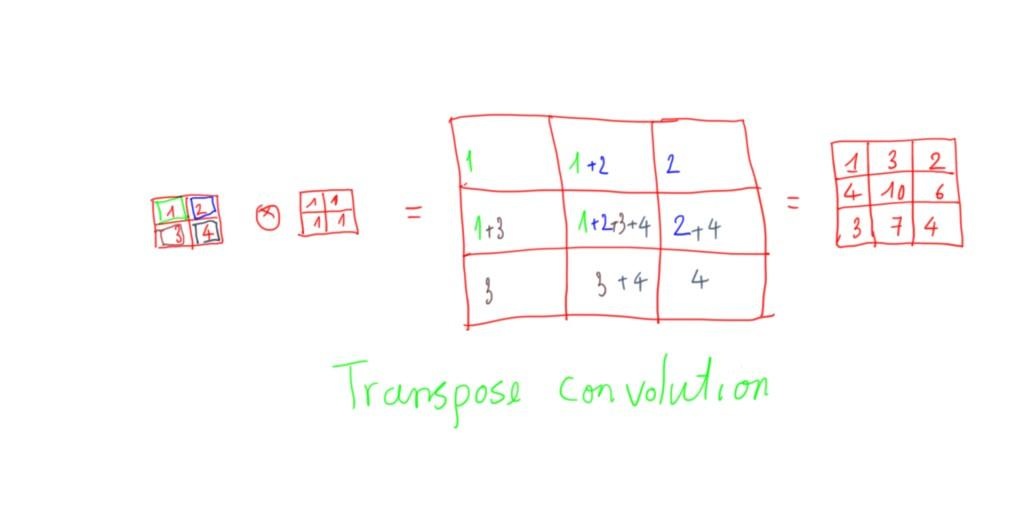 1 2
3 4
⊗
1 1
1 1
=
1 1+2 2
1+3 1+2+3+4 2+4
3 3+4 4
=
1 3 2
4 10 6
3 7 4
Transpose convolution